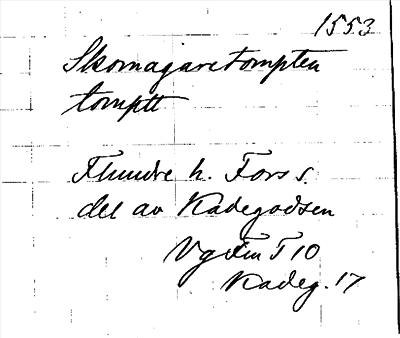 1553
Skomagaretompten
tomptt
Flundre h. Fors s.
del av Kadegodsen
Vg Fru T 10
Kadeg. 17